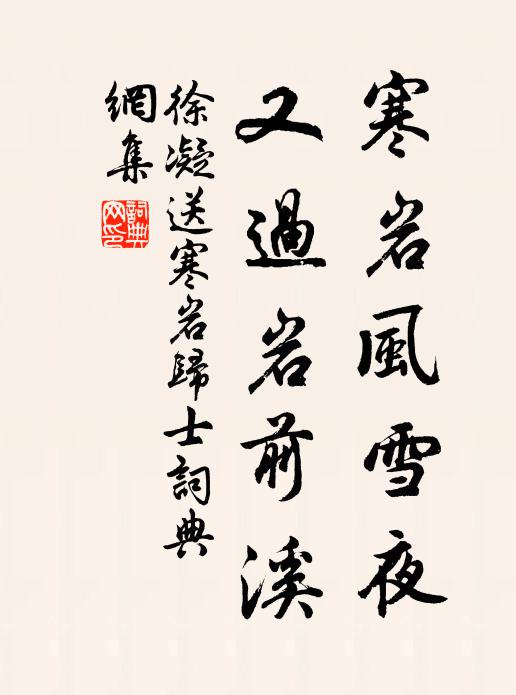 寒岩風雪夜
又過岩前溪
徐凝送寒岩歸士詞典
網集
詞典網印